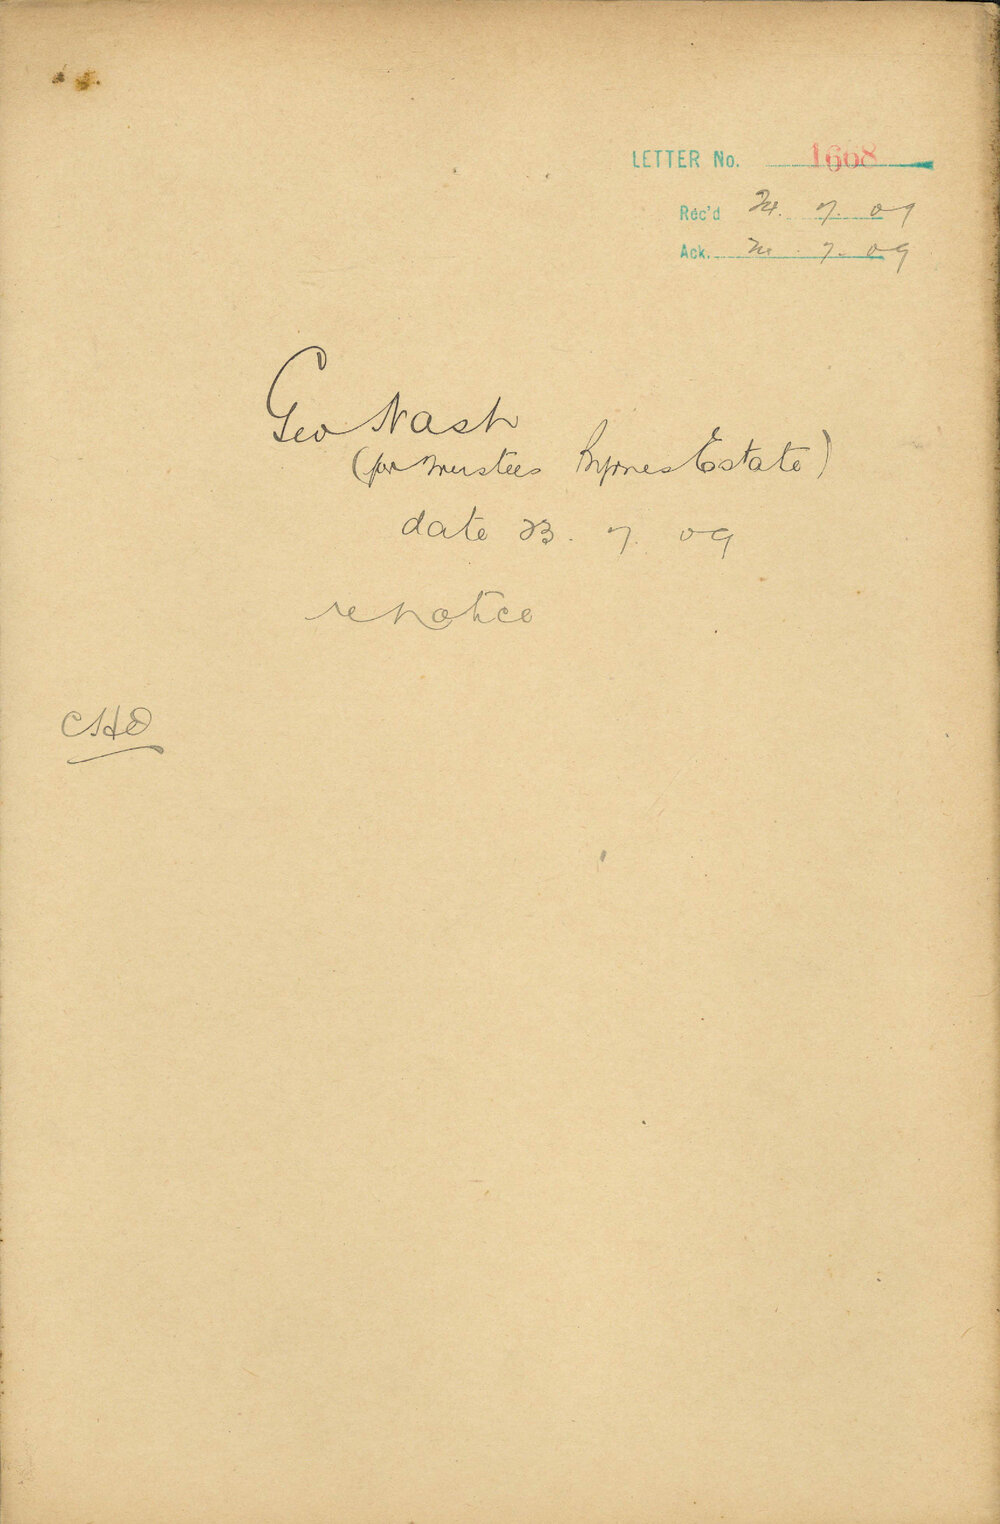 LETTER No. 1668
Rec'd 24. 7. 09
Ack. 24. 7. 09
Geo Nash
(for Trustees Byrnes Estate)
date 23. 7. 09
re notice
CHO